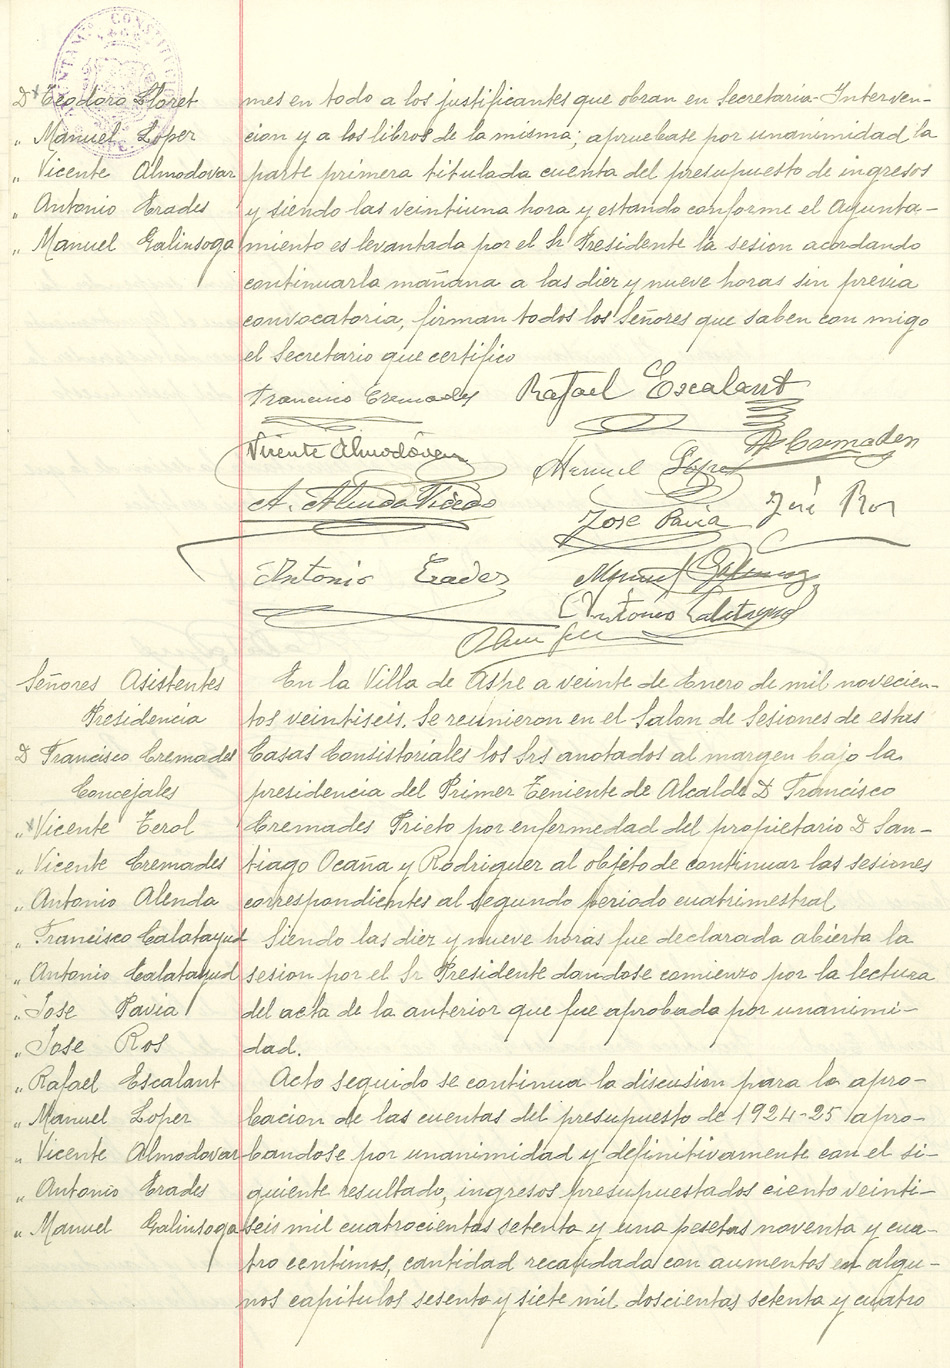 D. Teodoro Lloret
" Manuel Loper
" Vicente Almodovar
" Antonio Erades
" Manuel Galinsoga
mes en todo a los justificantes que obran en Secretaria-Interven-
cion y a los libros de la misma; apruebase por unanimidad la
parte primera titulada cuenta del presupuesto de ingresos
y siendo las veintiuna hora y estando conforme el Ayunta-
miento es levantada por el Sr Presidente la sesion acordando
continuarla mañana a las diez y nueve horas sin previa
convocatoria, firman todos los Señores que saben con migo
el Secretario que certifico
Francisco Cremades Rafael Escalant
Vicente Almodóvar Manuel Lopez V. Cremades
A. Alenda Jose Pavia José Ros
Antonio Erades Manuel Galinsoga
Antonio Calatayud
Señores Asistentes
Presidencia
D Francisco Cremades
Concejales
" Vicente Terol
" Vicente Cremades
" Antonio Alenda
" Francisco Calatayud
" Antonio Calatayud
" Jose Pavia
" Jose Ros
" Rafael Escalant
" Manuel Loper
" Vicente Almodovar
" Antonio Erades
" Manuel Galinsoga
En la Villa de Aspe a veinte de Enero de mil novecien-
tos veintiseis. Se reunieron en el Salon de Sesiones de estas
Casas Consistoriales los Srs anotados al margen bajo la
presidencia del Primer Teniente de Alcalde D Francisco
Cremades Prieto por enfermedad del propietario D San-
tiago Ocaña y Rodriguer al objeto de continuar las sesiones
correspondientes al segundo periodo cuatrimestral
Siendo las diez y nueve horas fue declarada abierta la
sesion por el Sr Presidente dandose comienzo por la lectura
del acta de la anterior que fue aprobada por unanimi-
dad.
Acto seguido se continua la discusion para la apro-
bacion de las cuentas del presupuesto de 1924-25 apro-
bandose por unanimidad y definitivamente con el si-
guiente resultado, ingresos presupuestados ciento veinti-
seis mil cuatrocientas setenta y una pesetas noventa y cua-
tro centimos, cantidad recaudada con aumentos en algu-
nos capitulos sesenta y siete mil doscientas setenta y cuatro